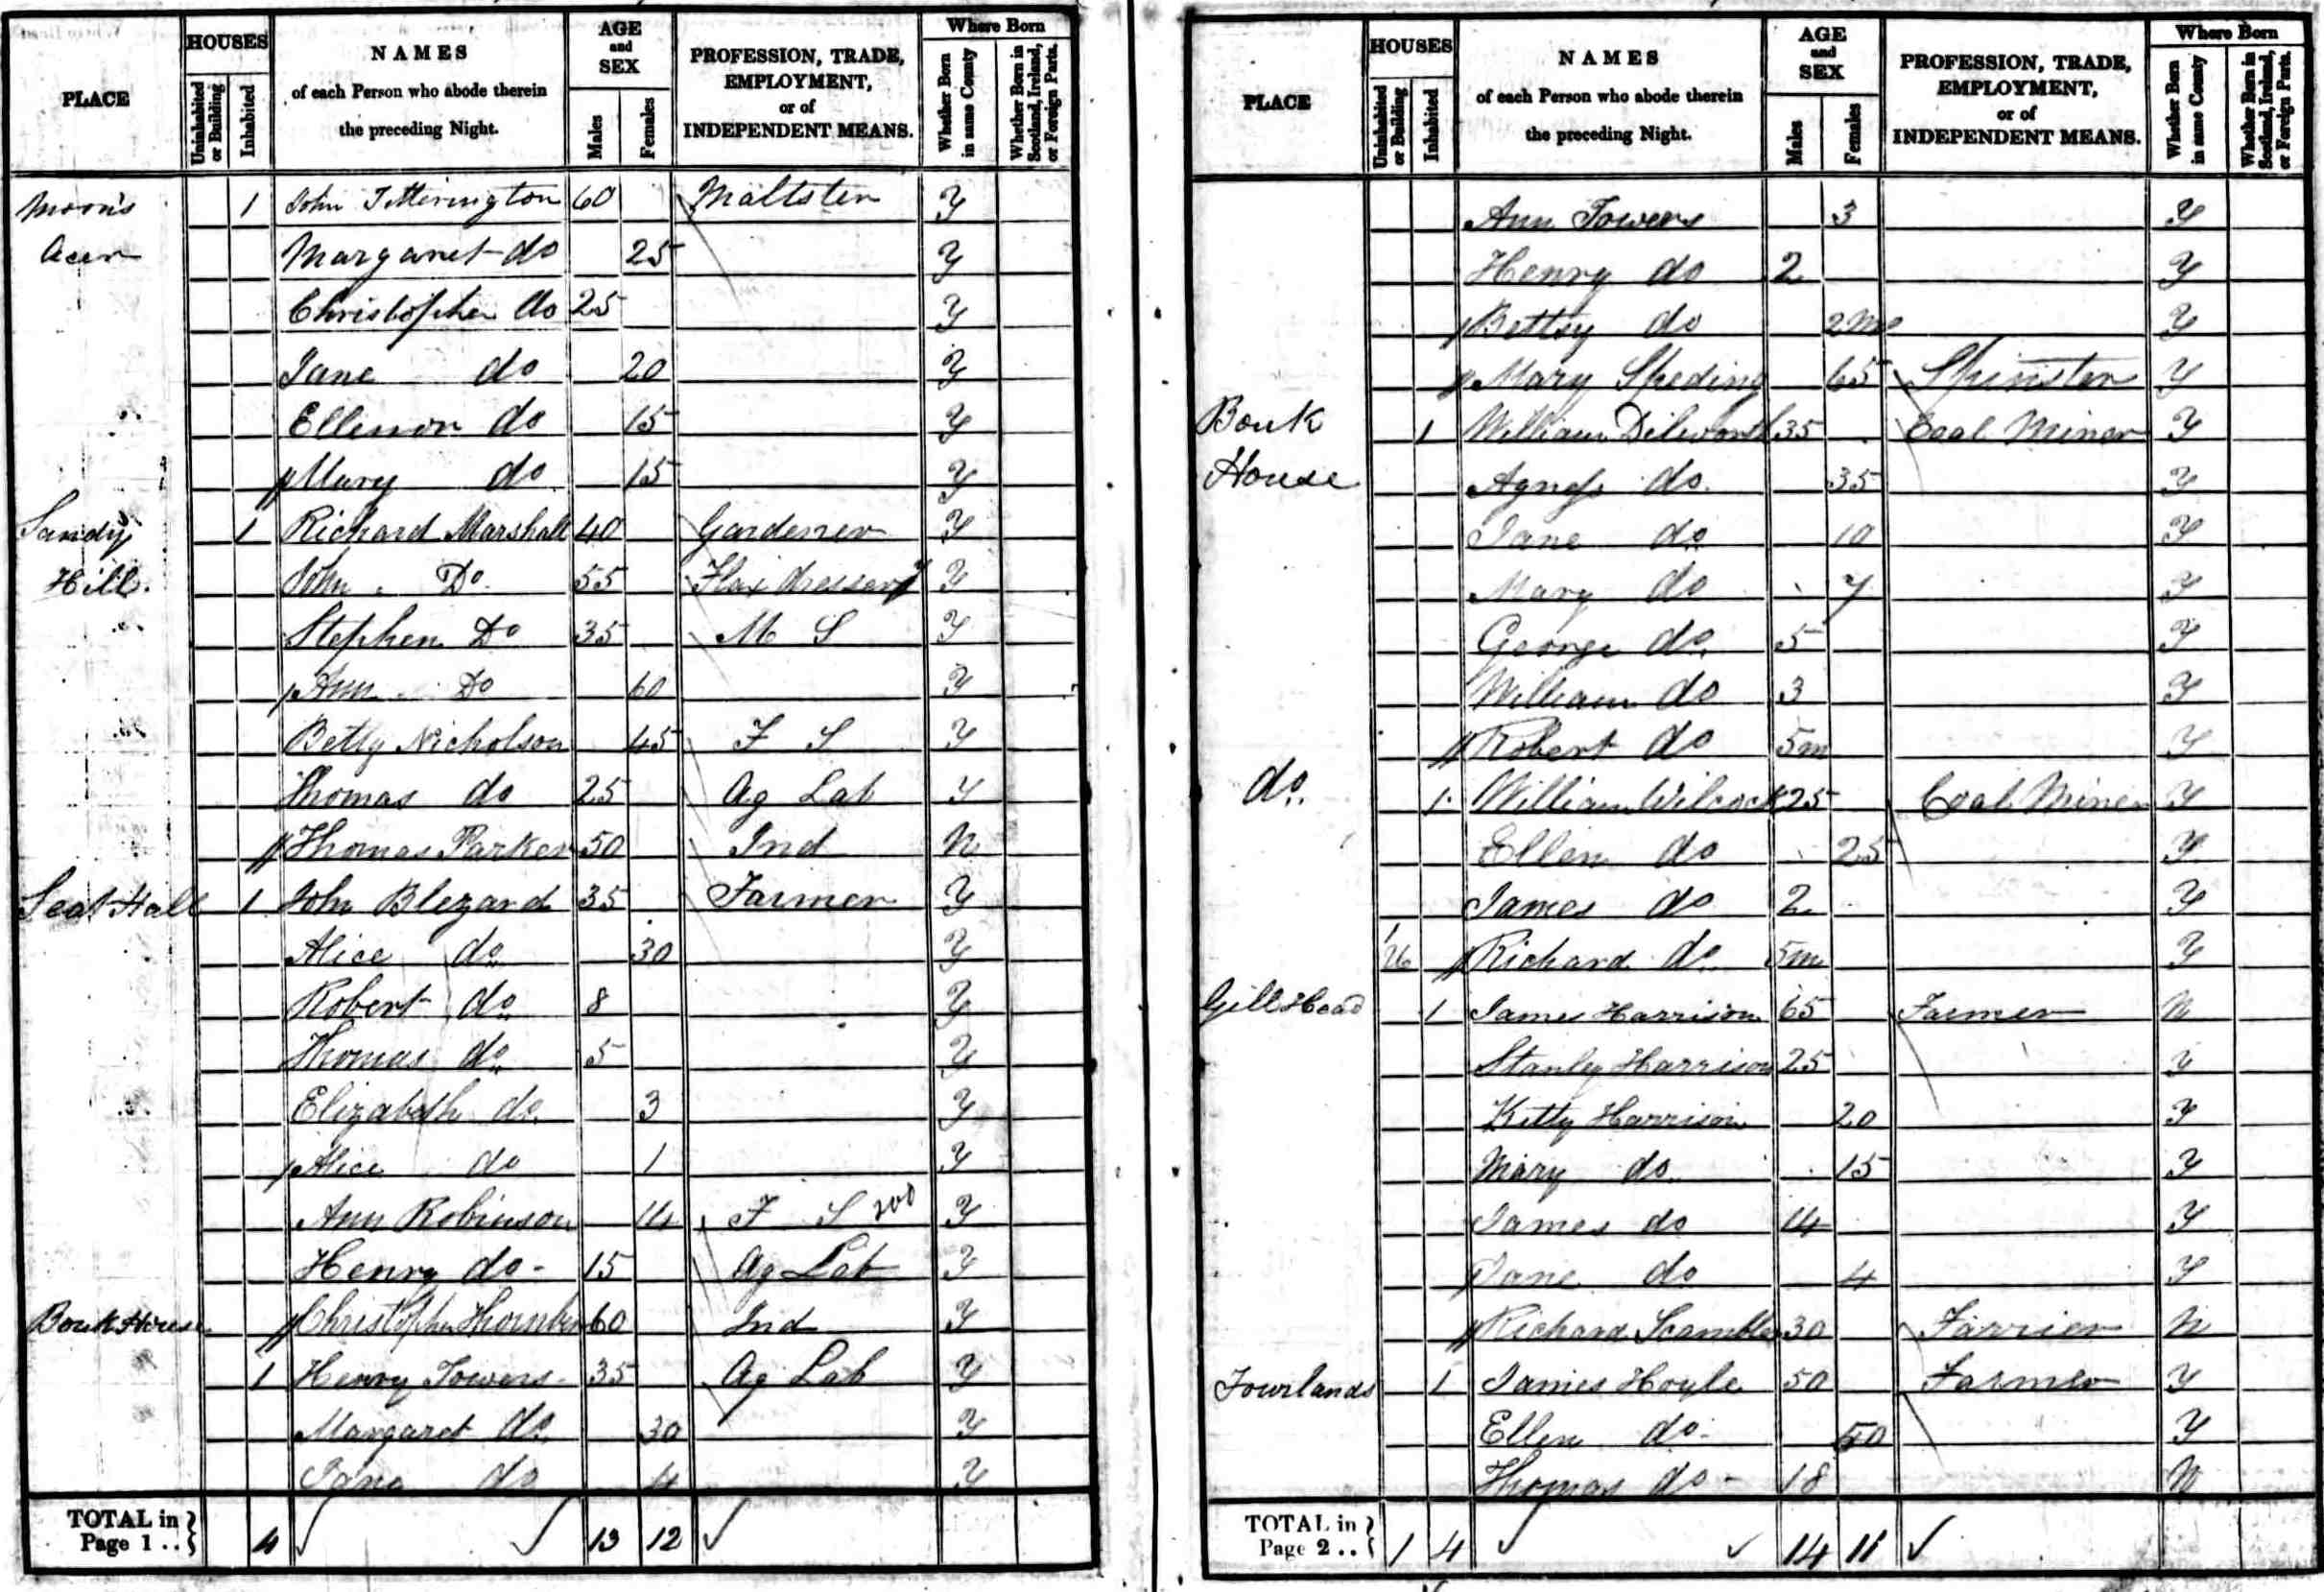 PLACE HOUSES Uninhabited or Building Inhabited NAMES of each Person who abode therein the preceding Night. AGE and SEX Males Females PROFESSION, TRADE, EMPLOYMENT, or of INDEPENDENT MEANS. Where Born Whether Born in same County Whether Born in Scotland, Ireland, or Foreign Parts.
Moon's 1 John Titterington 60 Maltster Y
Acer Margaret do 25 Y
Christopher do 25 Y
Jane do 20 Y
Ellenor do 15 Y
Mary do 15 Y
Sandy 1 Richard Marshall 40 Gardener Y
Hill. John Do 55 Flax dresser Y
Stephen Do 35 M S Y
Ann Do 60 Y
Betty Nicholson 45 F S Y
Thomas do 25 Ag Lab Y
Thomas Parker 50 Ind N
Seat Hall 1 John Blezard 35 Farmer Y
Alice do 30 Y
Robert do 8 Y
Thomas do 5 Y
Elizabeth do 3 Y
Alice do 1 Y
Ann Robinson 14 F S Y
Henry do - 15 Ag Lab Y
Christopher 60 Ind Y
Bouk House 1 Henry Towers 35 Ag Lab Y
Margaret do 30 Y
Jane do 4 Y
TOTAL in Page 1 .. 4 13 12
PLACE HOUSES Uninhabited or Building Inhabited NAMES of each Person who abode therein the preceding Night. AGE and SEX Males Females PROFESSION, TRADE, EMPLOYMENT, or of INDEPENDENT MEANS. Where Born Whether Born in same County Whether Born in Scotland, Ireland, or Foreign Parts.
Ann Towers 3 Y
Henry do 2 Y
Bettsy do 2 mo Y
Mary Speding 65 Spinster Y
Bouk 1 William Dilworth 35 Coal Miner Y
House Agness do 35 Y
Jane do 10 Y
Mary do 7 Y
George do. 5 Y
William do 3 Y
Robert do 5m Y
do. 1 William Wilcock 25 Coal Miner Y
Ellen do 25 Y
James do 2 Y
1 U Richard do. 5m Y
Gill Head 1 James Harrison 65 Farmer N
Stanley Harrison 25 Y
Kitty Harrison 20 Y
Mary do. 15 Y
James do 14 Y
Jane do 4 Y
Richard Scambler 30 Farrier N
Fourlands 1 James Hoyle 50 Farmer Y
Ellen do - 50 Y
Thomas do - 18 N
TOTAL in Page 2 .. 1 4 14 11